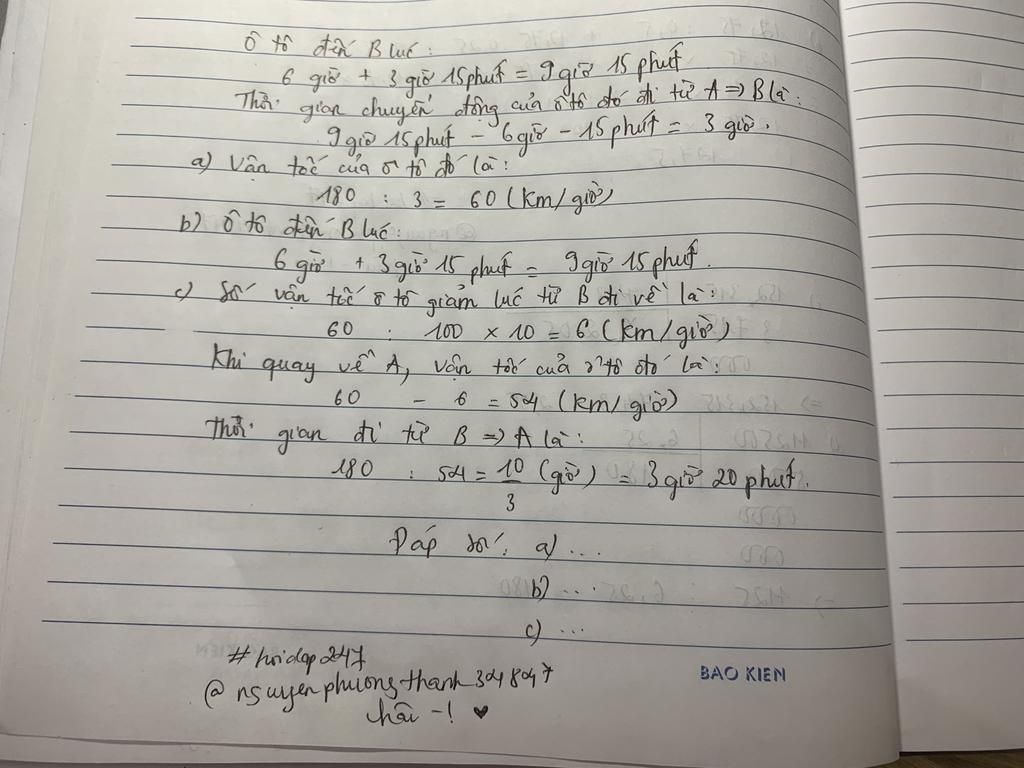 Ô tô đến B lúc:
6 giờ + 3 giờ 15 phút = 9 giờ 15 phút
Thời gian chuyển động của ô tô đó đi từ A => B là:
9 giờ 15 phút - 6 giờ - 15 phút = 3 giờ.
a) Vận tốc của ô tô đó là:
180 : 3 = 60 (km/giờ)
b) Ô tô đến B lúc:
6 giờ + 3 giờ 15 phút = 9 giờ 15 phút.
c) Số vận tốc ô tô giảm lúc từ B đi về là:
60 : 100 × 10 = 6 (km/giờ)
Khi quay về A, vận tốc của ô tô đó là:
60 - 6 = 54 (km/giờ)
Thời gian đi từ B => A là:
180 : 54 = 10/3 (giờ) = 3 giờ 20 phút.
Đáp số: a) ...
b) ...
c) ...
#hoidap247
@nguyenphuongthanh34847
-! ♥
BAO KIEN